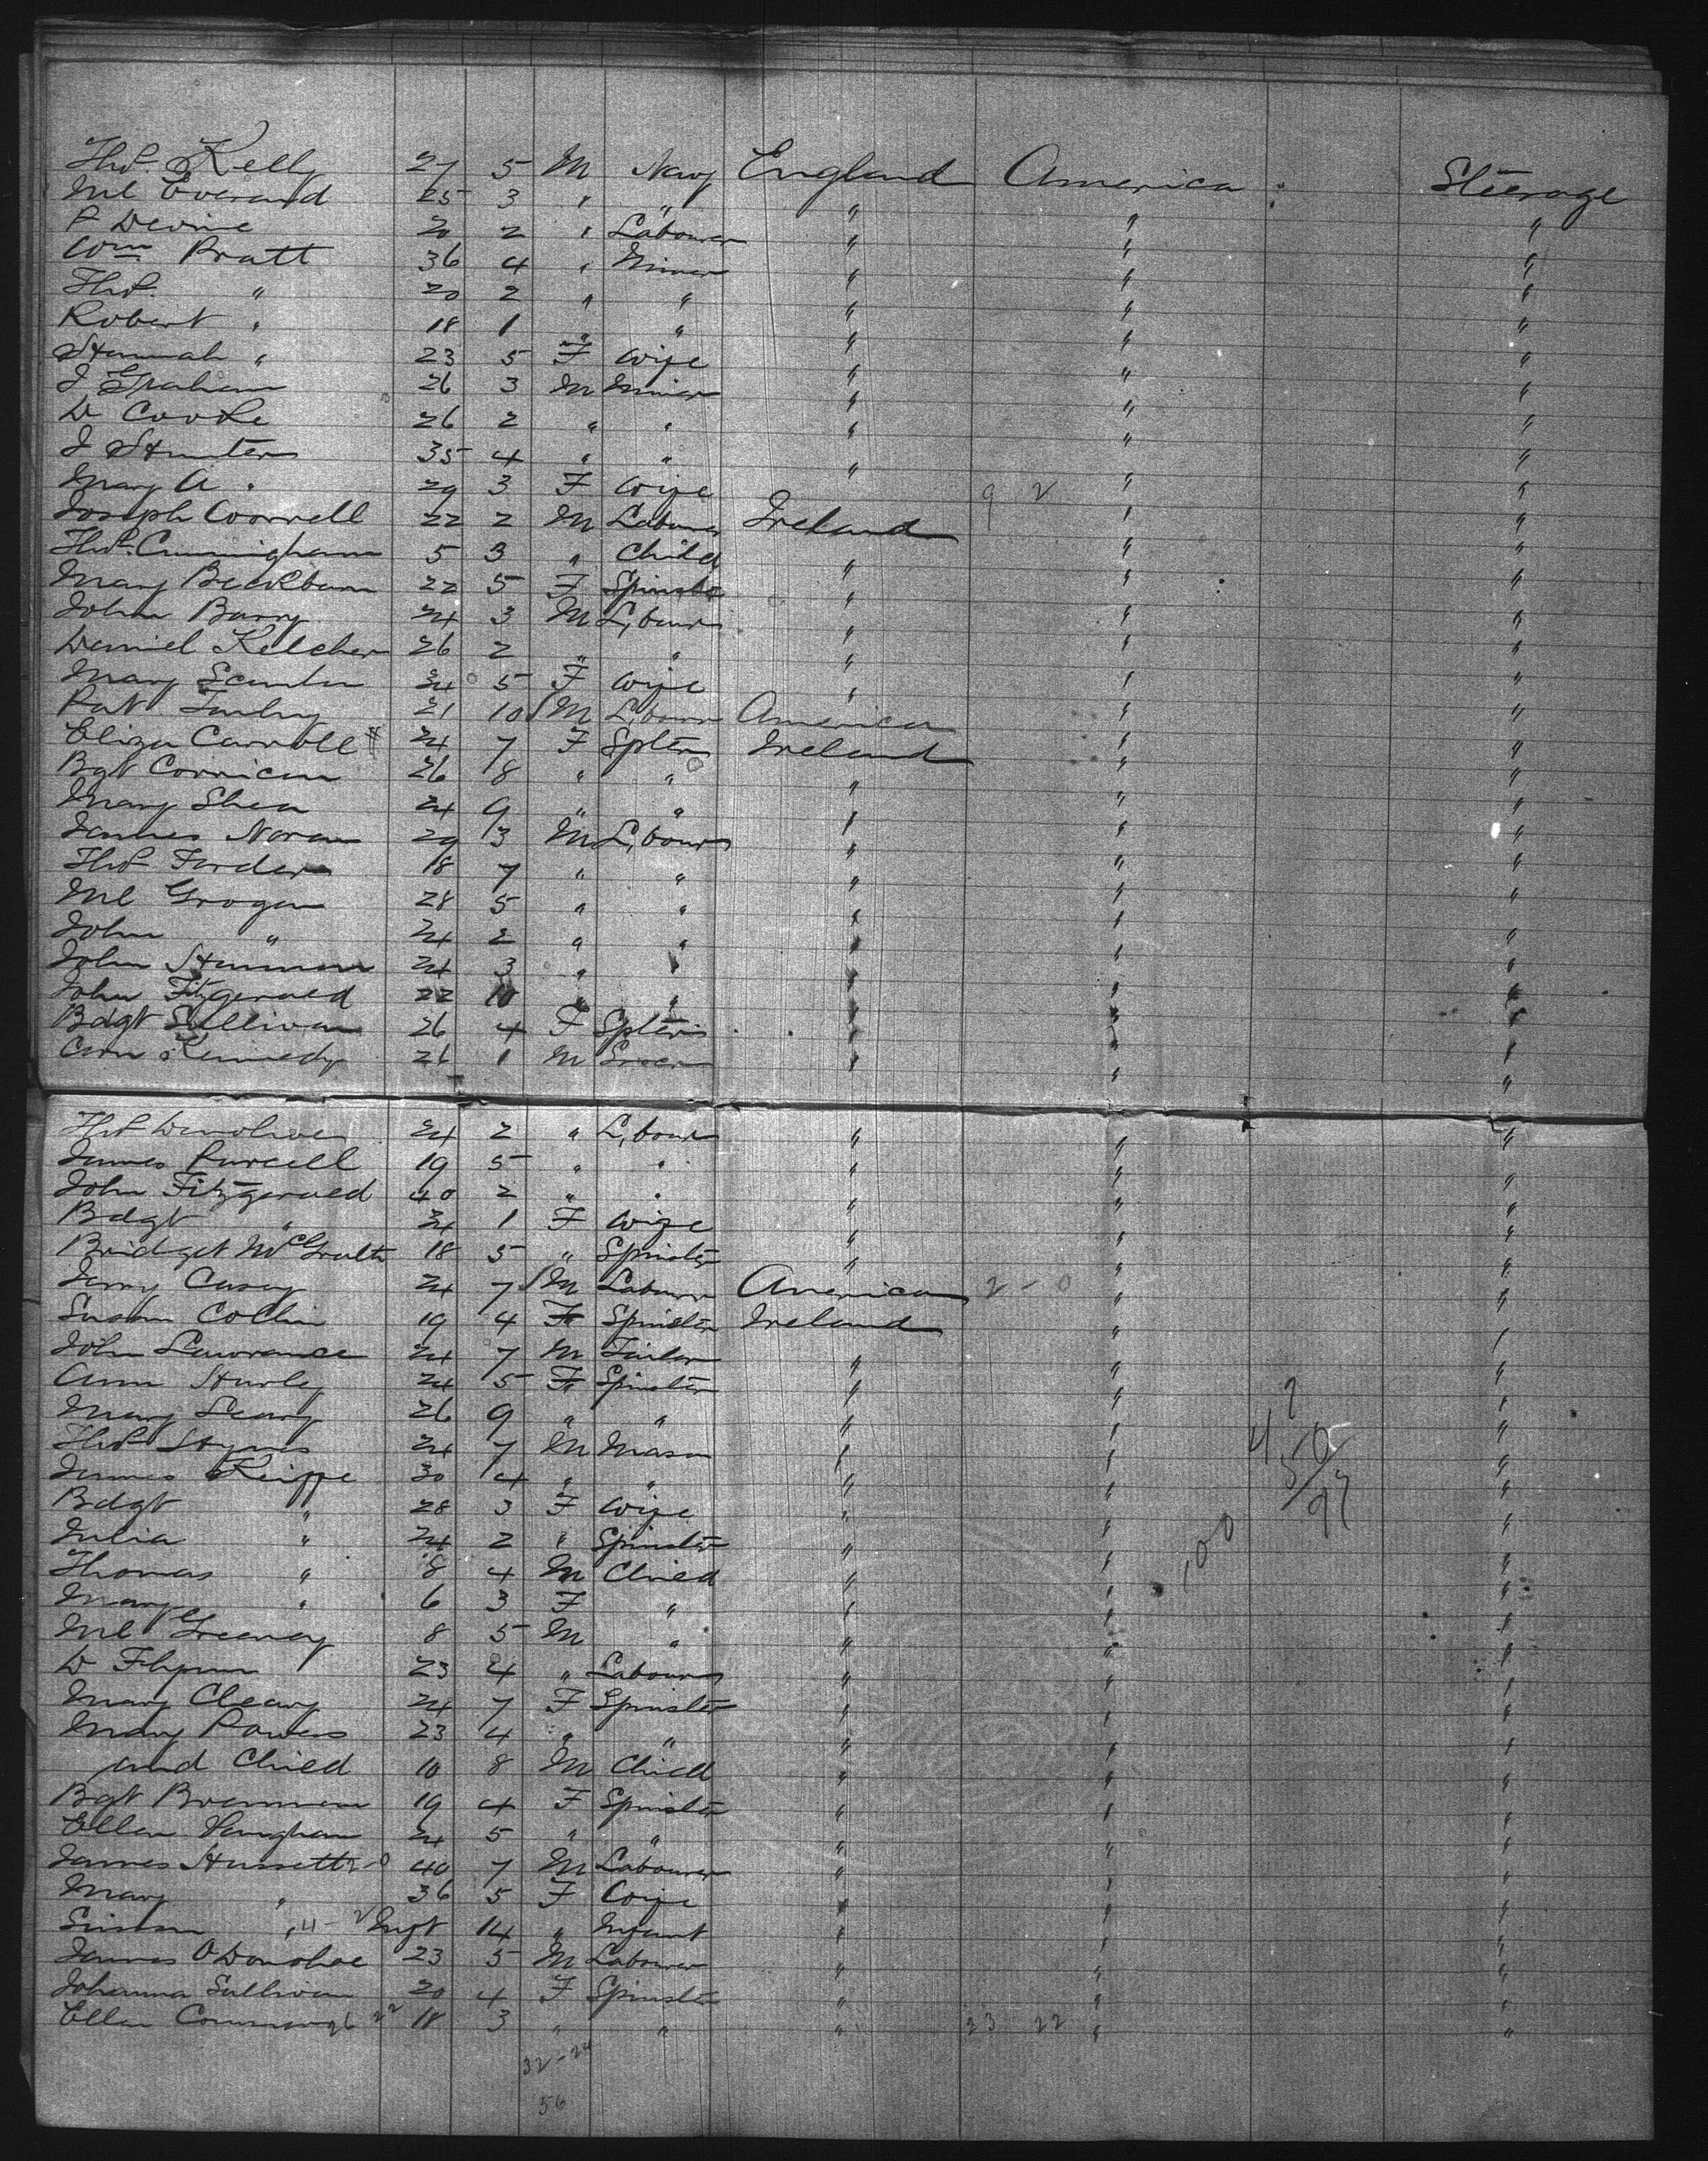 Thos. Kelly 27 5 M Navy England America Steerage
Ml Everard 25 3 " " " " "
P Devine 20 2 " Labourer " " "
Wm Pratt 36 4 " Miner " " "
Thos. " 20 2 " " " " "
Robert " 18 1 " " " " "
Hannah " 23 5 F Wife " " "
J Graham 26 3 M Miner " " "
D Cooke 26 2 " " " " "
J Hunter 35 4 " " " " "
Mary A " 29 3 F Wife " 9 2 " "
Joseph 22 2 M Labourer Ireland " "
Thos. Cunningham 5 3 " Child " " "
Mary 22 5 F Spinster " " "
John Barry 24 3 M Labour " " "
Daniel Kelcher 26 2 " " " " "
Mary 24 5 F Wife " " "
Pat 21 10 M Labour America " "
Eliza Carroll 24 7 F Spters Ireland " "
Bgt Corrican 26 8 " " " " "
Mary Shea 24 9 " " " " "
James Noran 29 3 M Labour " " "
Thos 18 7 " " " " "
Ml Grogan 28 5 " " " " "
John " 24 2 " " " " "
John 24 3 " " " " "
John Fitzgerald 22 10 " " " " "
Bdgt Sullivan 26 4 F Spters " " "
Kennedy 26 1 M " " "
Thos Donohoe 24 2 " Labour " " "
James Purcell 19 5 " " " " "
John Fitzgerald 40 2 " " " " "
Bdgt " 24 1 F Wife " " "
Bridget McGrath 18 5 " Spinster " " "
Jerry Casey 24 7 M Labour America 2 - 0 " "
Susan Collin 19 4 F Spinster Ireland " "
John Lawrance 24 7 M Tailor " " "
Ann Hurley 24 5 F Spinster " " "
Mary Leary 26 9 " " " " "
Thos 24 7 M Mason " " "
James 30 4 " " " " "
Bdgt " 28 3 F Wife " " "
Julia " 24 2 " Spinster " " "
Thomas " 8 4 M Child " " "
Mary " 6 3 F " " " "
Ml Greaney 8 5 M " " " "
D Flynn 23 4 " Labourer " " "
Mary Cleary 24 7 F Spinster " " "
Mary Powers 23 4 " " " " "
and Child 10 8 M Child " " "
Bgt Brennan 19 4 F Spinster " " "
Ellen Vaughan 24 5 " " " " "
James 40 7 M Labourer " " "
Mary " 36 5 F Wife " " "
" Inft 14 " Infant " " "
James O'Donohoe 23 5 M Labourer " " "
Johanna Sullivan 20 4 F Spinster " " "
Ellen 22 18 3 " " " 23 22 " "
32-24
56